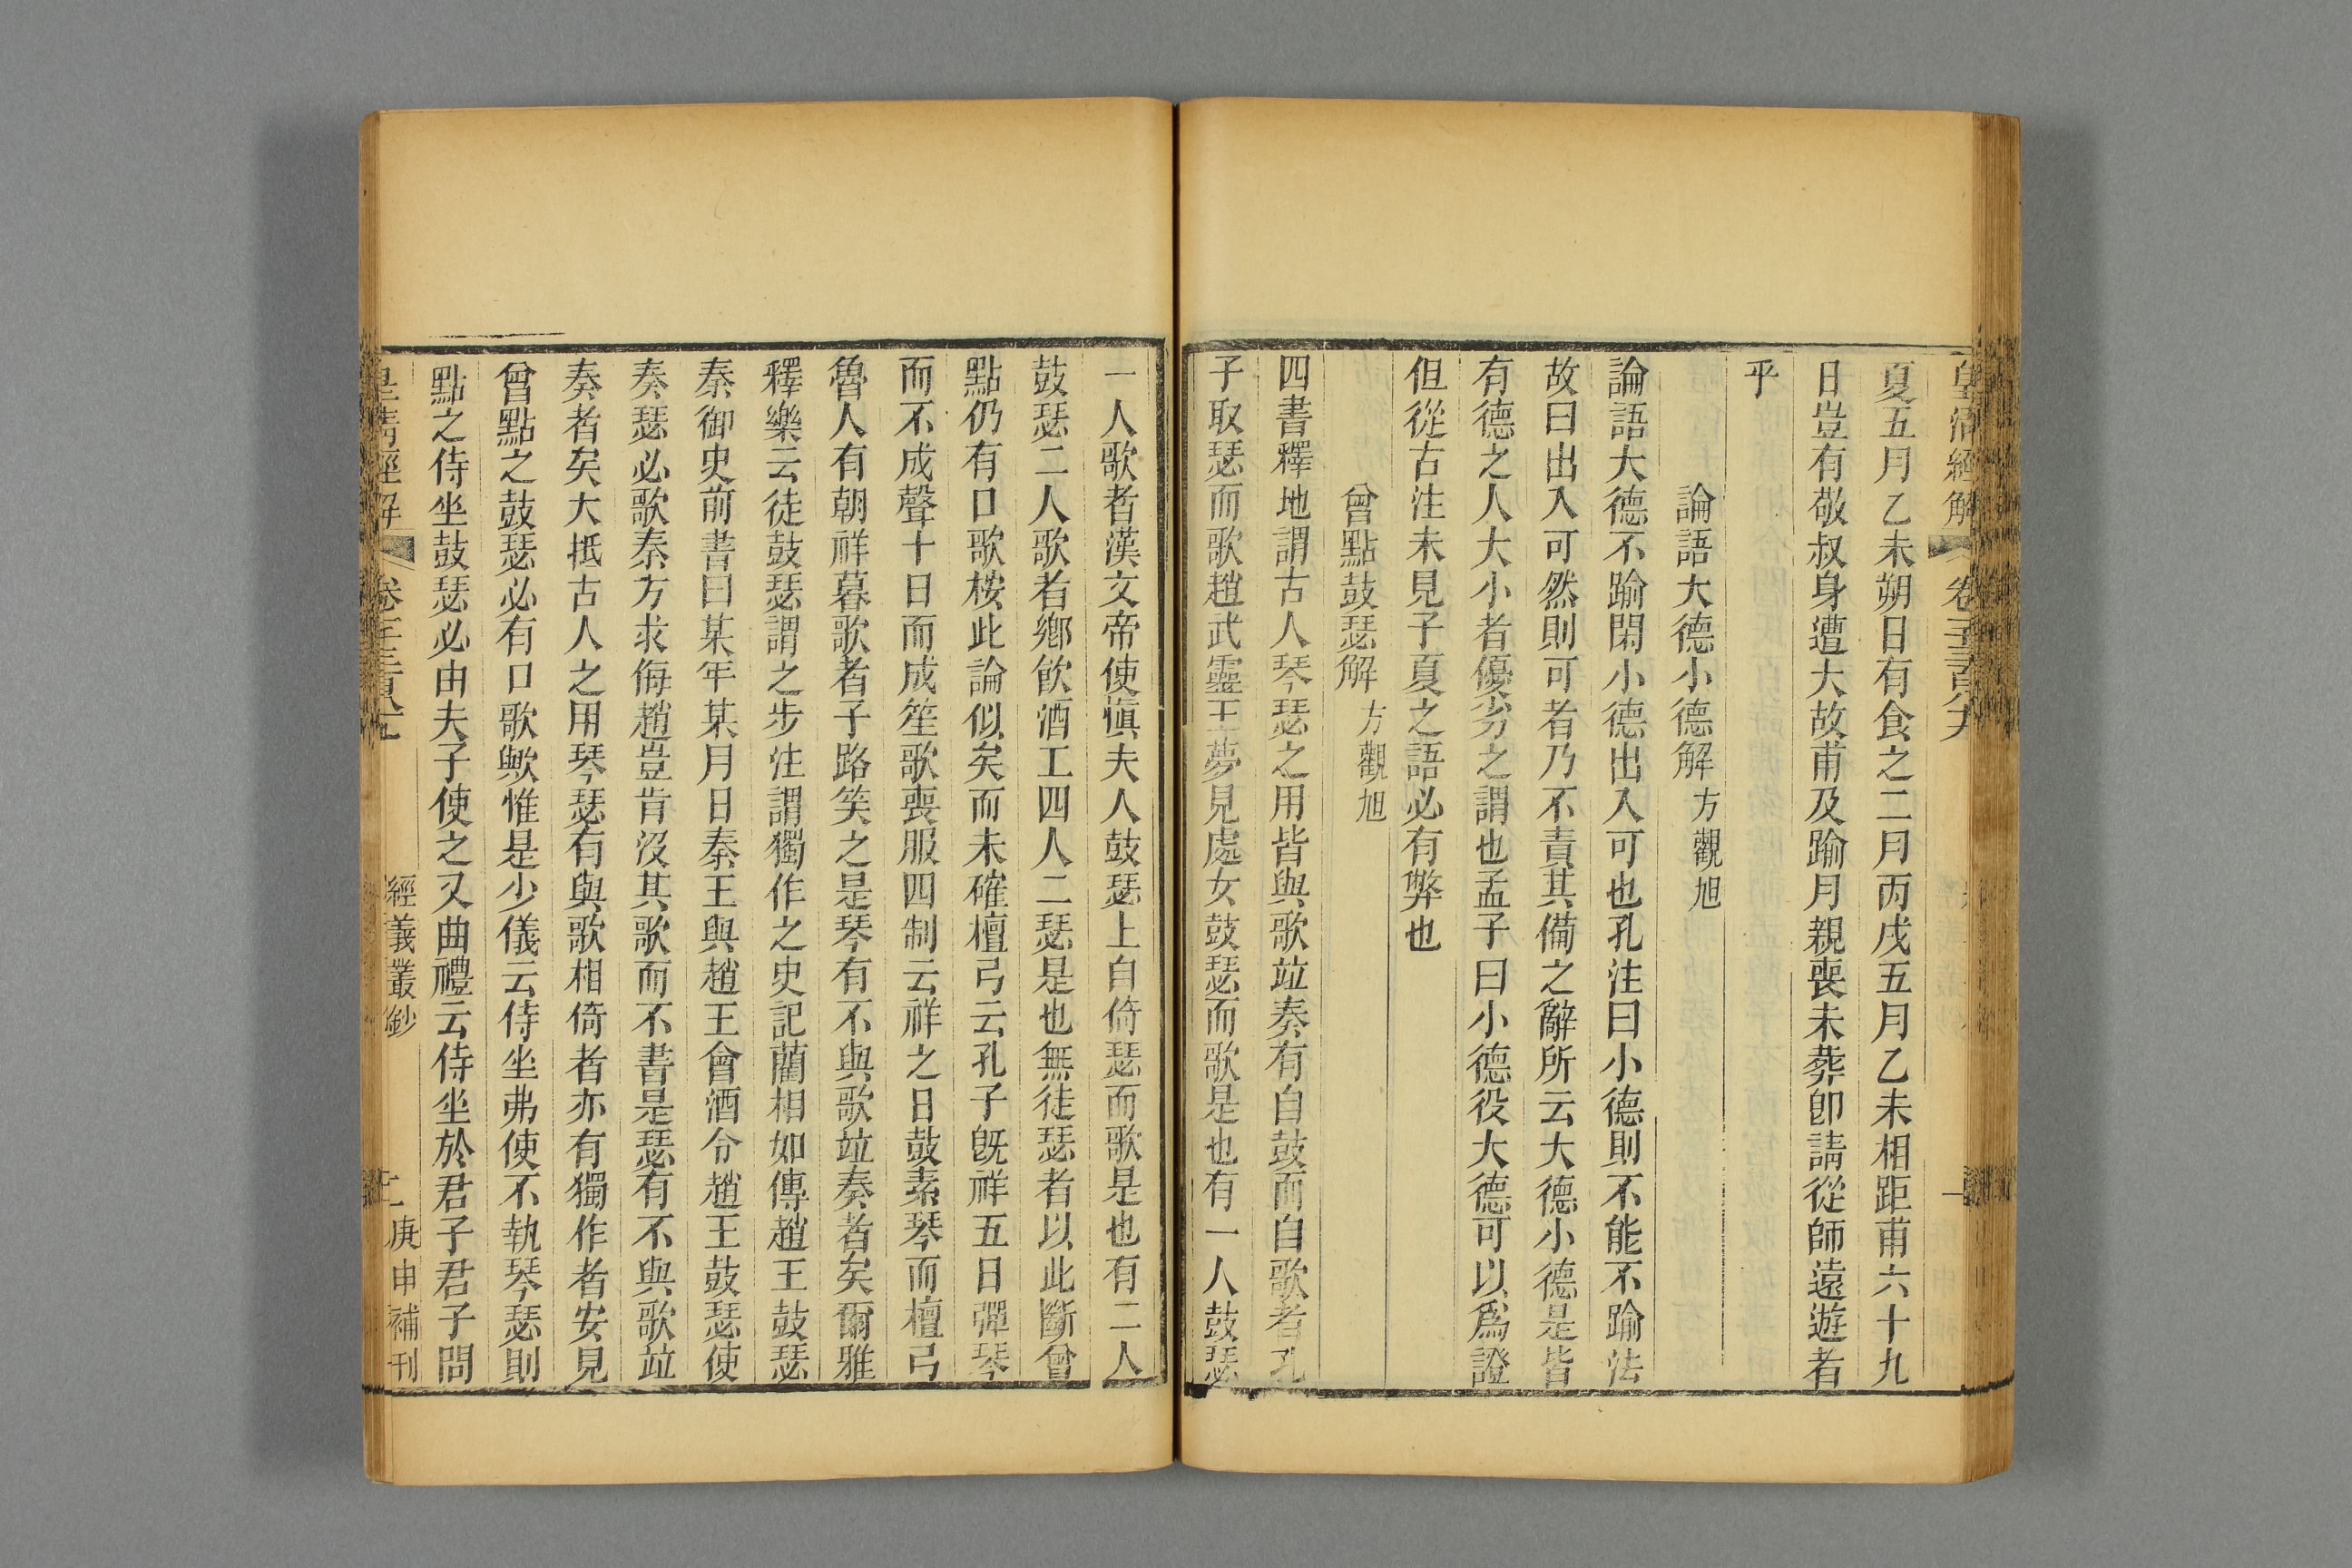 皇清經解
夏五月乙未朔日有食之二月丙戌五月乙未相距甫六十九
日豈有敬叔身遭大故甫及踰月親喪未葬卽請從師遠遊者
乎
論語大德小德解 方觀旭
論語大德不踰閑小德出入可也孔注曰小德則不能不踰法
故曰出入可然則可者乃不責其備之辭所云大德小德是皆
有德之人大小者優劣之謂也孟子曰小德役大德可以爲證
但從古注未見子夏之語必有弊也
曾點鼓瑟解 方觀旭
四書釋地謂古人琴瑟之用皆與歌竝奏有自鼓而自歌者孔
子取瑟而歌趙武靈王夢見處女鼓瑟而歌是也有一人鼓瑟
一人歌者漢文帝使愼夫人鼓瑟上自倚瑟而歌是也有二人
鼓瑟二人歌者鄉飮酒工四人二瑟是也無徒瑟者以此斷曾
點仍有口歌桉此論似矣而未確檀弓云孔子旣祥五日彈琴
而不成聲十日而成笙歌喪服四制云祥之日鼓素琴而檀弓
魯人有朝祥暮歌者子路笑之是琴有不與歌竝奏者矣爾雅
釋樂云徒鼓瑟謂之步注謂獨作之史記藺相如傳趙王鼓瑟
秦御史前書曰某年某月日秦王與趙王會酒令趙王鼓瑟使
奏瑟必歌秦方求侮趙豈肯沒其歌而不書是瑟有不與歌竝
奏者矣大抵古人之用琴瑟有與歌相倚者亦有獨作者安見
曾點之鼓瑟必有口歌歟惟是少儀云侍坐弗使不執琴瑟則
點之侍坐鼓瑟必由夫子使之又曲禮云侍坐於君子君子問
皇清經解 經義叢鈔 庚申補刊